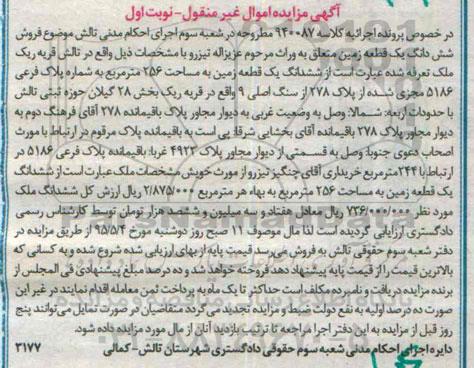 آگهی مزایده اموال غیر منقول - نوبت اول
در خصوص پرونده اجرائیه کلاسه ۹۴۰۰۸۷ مطروحه در شعبه سوم اجرای احکام مدنی تالش موضوع فروش
شش دانگ یک قطعه زمین متعلق به وراث مرحوم عزیزاله تیزرو با مشخصات ذیل واقع در تالش قریه ریک
ملک تعرفه شده عبارت است از ششدانگ یک قطعه زمین به مساحت ۲۵۶ مترمربع به شماره پلاک فرعی
۵۱۸۶ مجزی شده از پلاک ۲۷۸ از سنگ اصلی ۹ واقع در قریه ریک بخش ۲۸ گیلان حوزه ثبتی تالش
با حدودات اربعه: شمالا: وصل به وضعیت غربی به دیوار مجاور پلاک باقیمانده ۲۷۸ آقای فرهنگ دوم به
دیوار مجاور پلاک ۲۷۸ باقیمانده آقای بخشایی شرقا: پی است به باقیمانده پلاک مرقوم در ارتباط با مورث
اصحاب دعوی جنوبا: وصل به قسمتی از دیوار مجاور پلاک ۴۹۲۲ غربا: باقیمانده پلاک فرعی ۵۱۸۶ در
ارتباط با ۲۴۴ مترمربع خریداری آقای چنگیز تیزرو از مورث خویش مشخصات ملک عبارت است از ششدانگ
یک قطعه زمین به مساحت ۲۵۶ مترمربع به بهاء هر مترمربع ۲/۸۷۵/۰۰۰ ریال ارزش کل ششدانگ ملک
مورد نظر ۷۳۶/۰۰۰/۰۰۰ ریال معادل هفتاد و سه میلیون و ششصد هزار تومان توسط کارشناس رسمی
دادگستری ارزیابی گردیده است لذا مال موصوف ۱۱ صبح روز دوشنبه مورخ ۹۵/۵/۴ از طریق مزایده در
دفتر شعبه سوم حقوقی تالش به فروش می‌رسد قیمت پایه از بهای ارزیابی شده شروع شده و به کسانی که
بالاترین قیمت را از قیمت پایه پیشنهاد دهد فروخته خواهد شد و ده درصد مبلغ پیشنهادی فی المجلس از
برنده مزایده دریافت و نامبرده مکلف است حداکثر تا یک ماه به پرداخت ثمن معامله اقدام نمایند در غیر این
صورت ده درصد اولیه به نفع دولت ضبط و مزایده تجدید می‌گردد متقاضیان در صورت تمایل می‌توانند پنج
روز قبل از مزایده به این دفتر اجرا مراجعه تا ترتیب بازدید آنان از مال مورد مزایده داده شود.
دایره اجرای احکام مدنی شعبه سوم حقوقی دادگستری شهرستان تالش - کمالی ۳۱۷۷